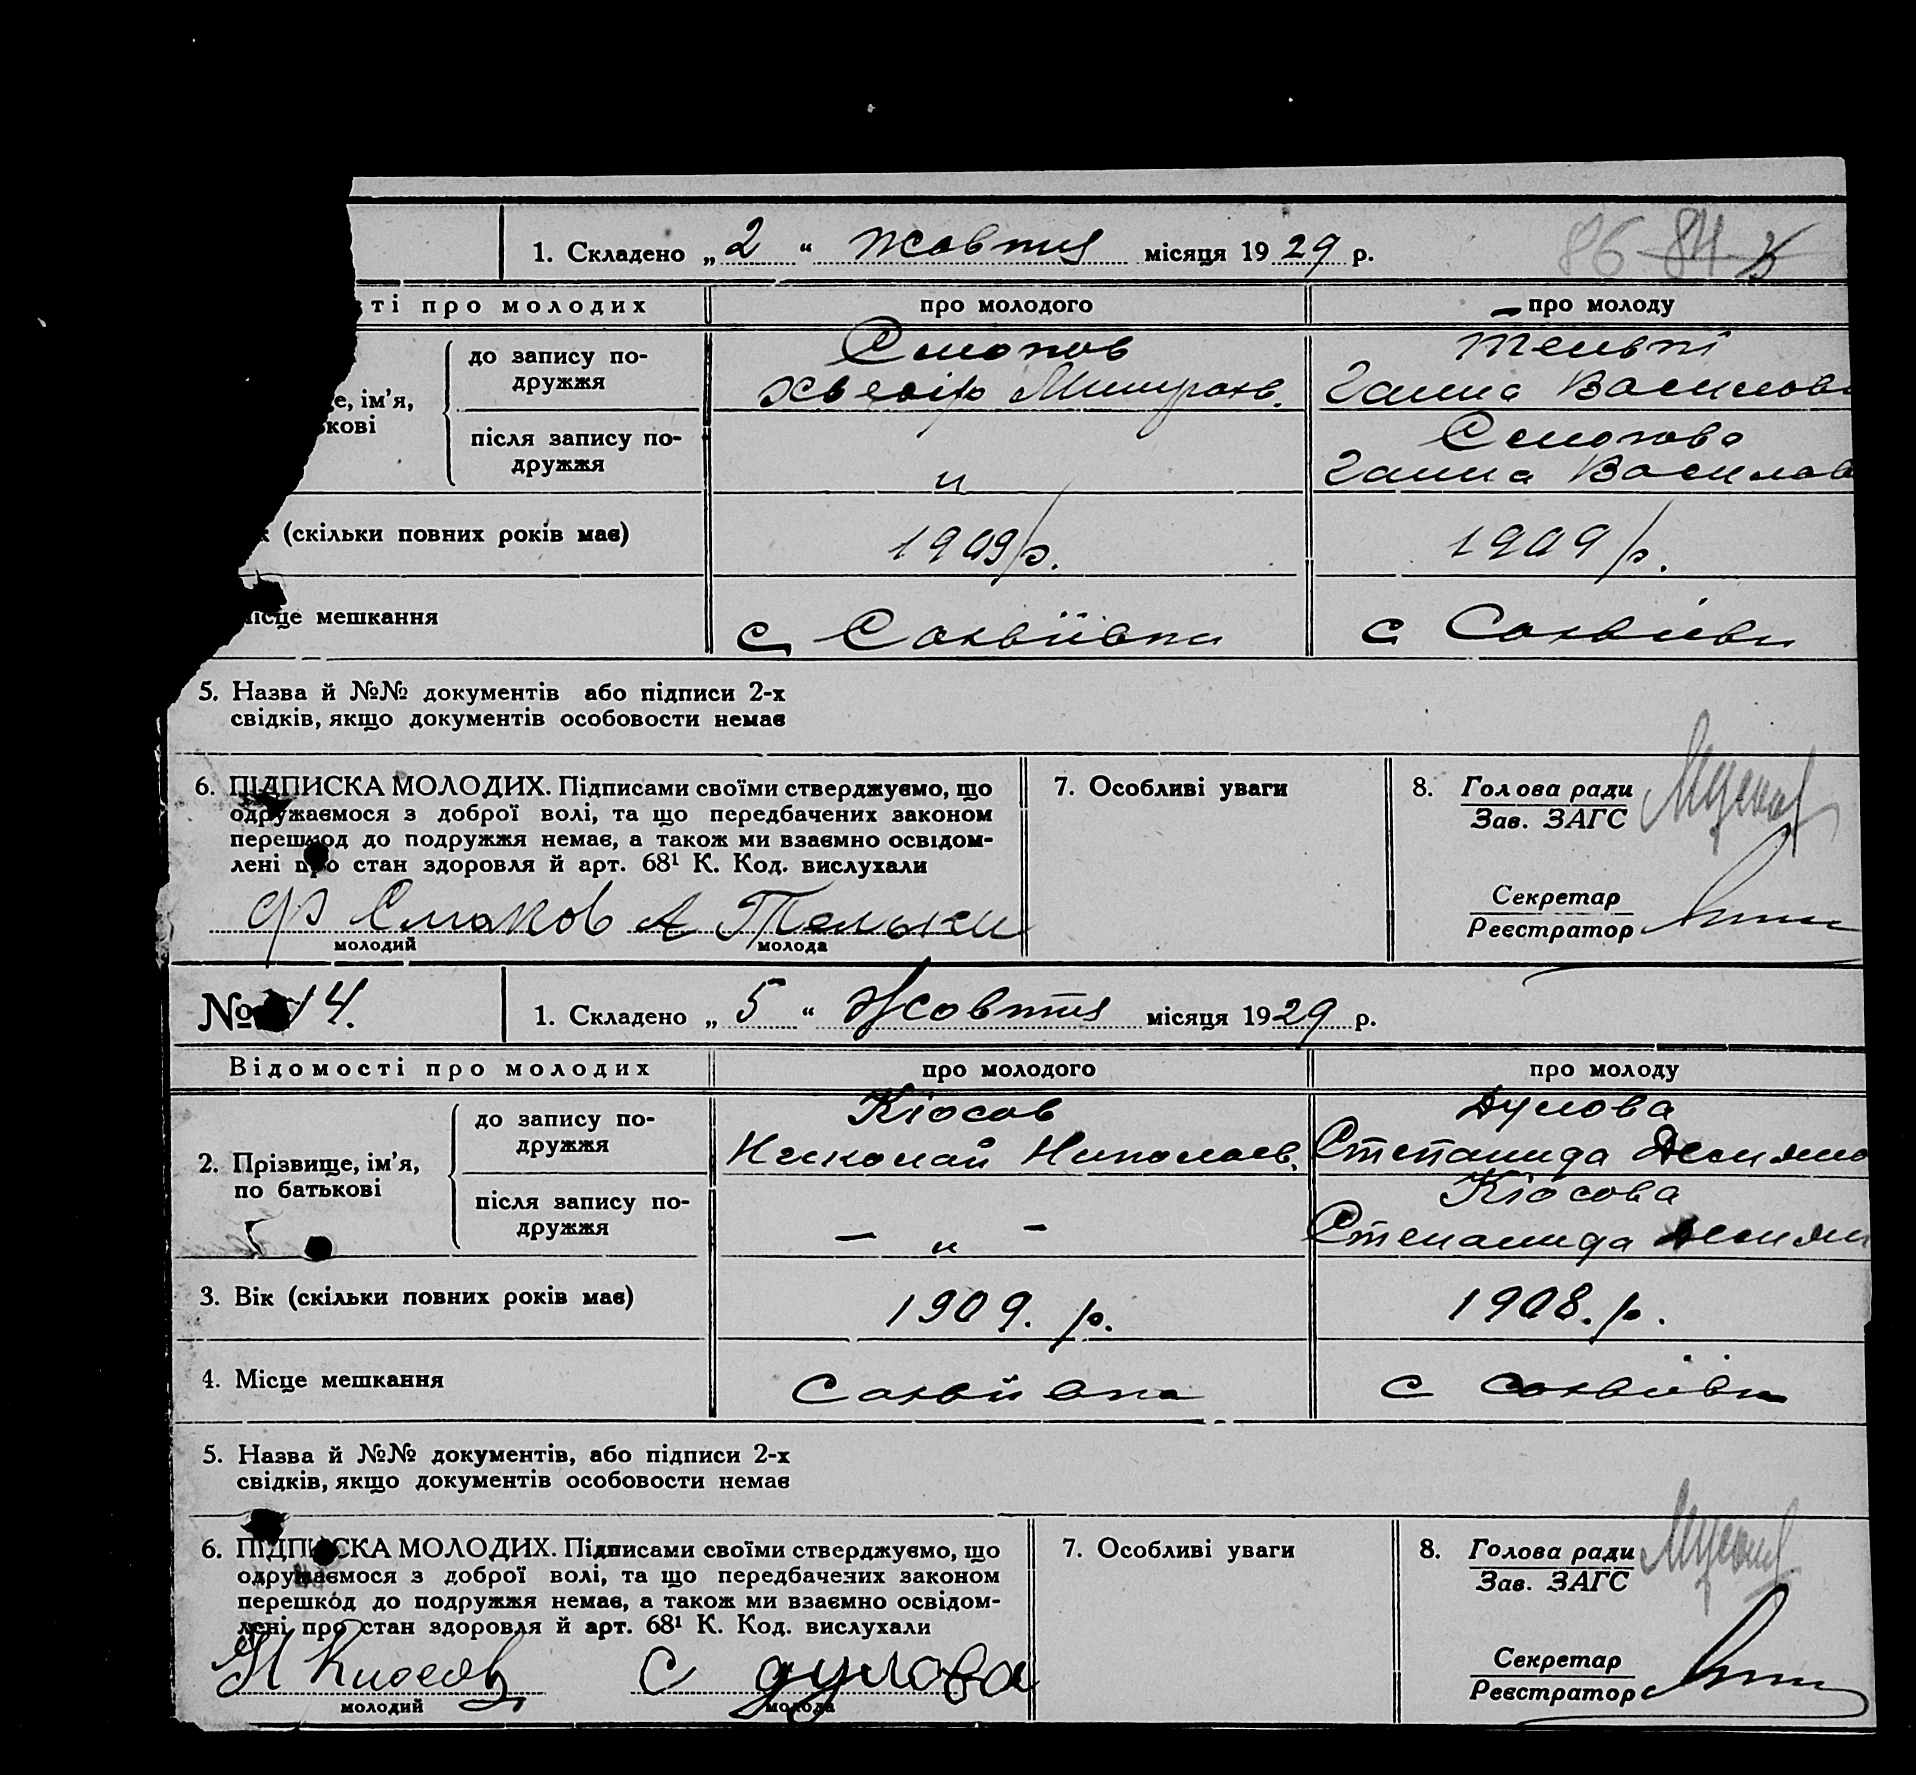 1. Складено „ 2 “ жовтня місяця 1929 р.
86 84
ті про молодих про молодого про молоду
до запису подружжя
Смоков
Хведір
Тельпі
Ганна Василов
е, ім’я,
кові
після запису подружжя
"
Смокова
Ганна Василов
(скільки повних років має) 1909 р. 1909 р.
місце мешкання с Сохвіівка с Сохвіівки
5. Назва й №№ документів або підписи 2-х
свідків, якщо документів особовости немає
6. ПІДПИСКА МОЛОДИХ. Підписами своїми стверджуємо, що
одружаємося з доброї волі, та що передбачених законом
перешкод до подружжя немає, а також ми взаємно освідом-
лені про стан здоровля й арт. 68¹ К. Код. вислухали
Ф Смоков А Тельпи
молодий молода
7. Особливі уваги
8. Голова ради
Зав. ЗАГС
Секретар
Реєстратор
№ 14. 1. Складено „ 5 “ Жовтня місяця 1929 р.
Відомості про молодих про молодого про молоду
2. Прізвище, ім’я,
по батькові
до запису по-
дружжя
Кіосов
Николай Николаев.
Дулова
Степанида
після запису по-
дружжя
— " —
Кіосова
Степанида
3. Вік (скільки повних років має) 1909. р. 1908. р.
4. Місце мешкання Сохвіівка с Сохвіівки
5. Назва й №№ документів, або підписи 2-х
свідків, якщо документів особовости немає
6. ПІДПИСКА МОЛОДИХ. Підписами своїми стверджуємо, що
одружаємося з доброї волі, та що передбачених законом
перешкод до подружжя немає, а також ми взаємно освідом-
лені про стан здоровля й арт. 68¹ К. Код. вислухали
Н Киосов С дулова
молодий молода
7. Особливі уваги
8. Голова ради
Зав. ЗАГС
Секретар
Реєстратор